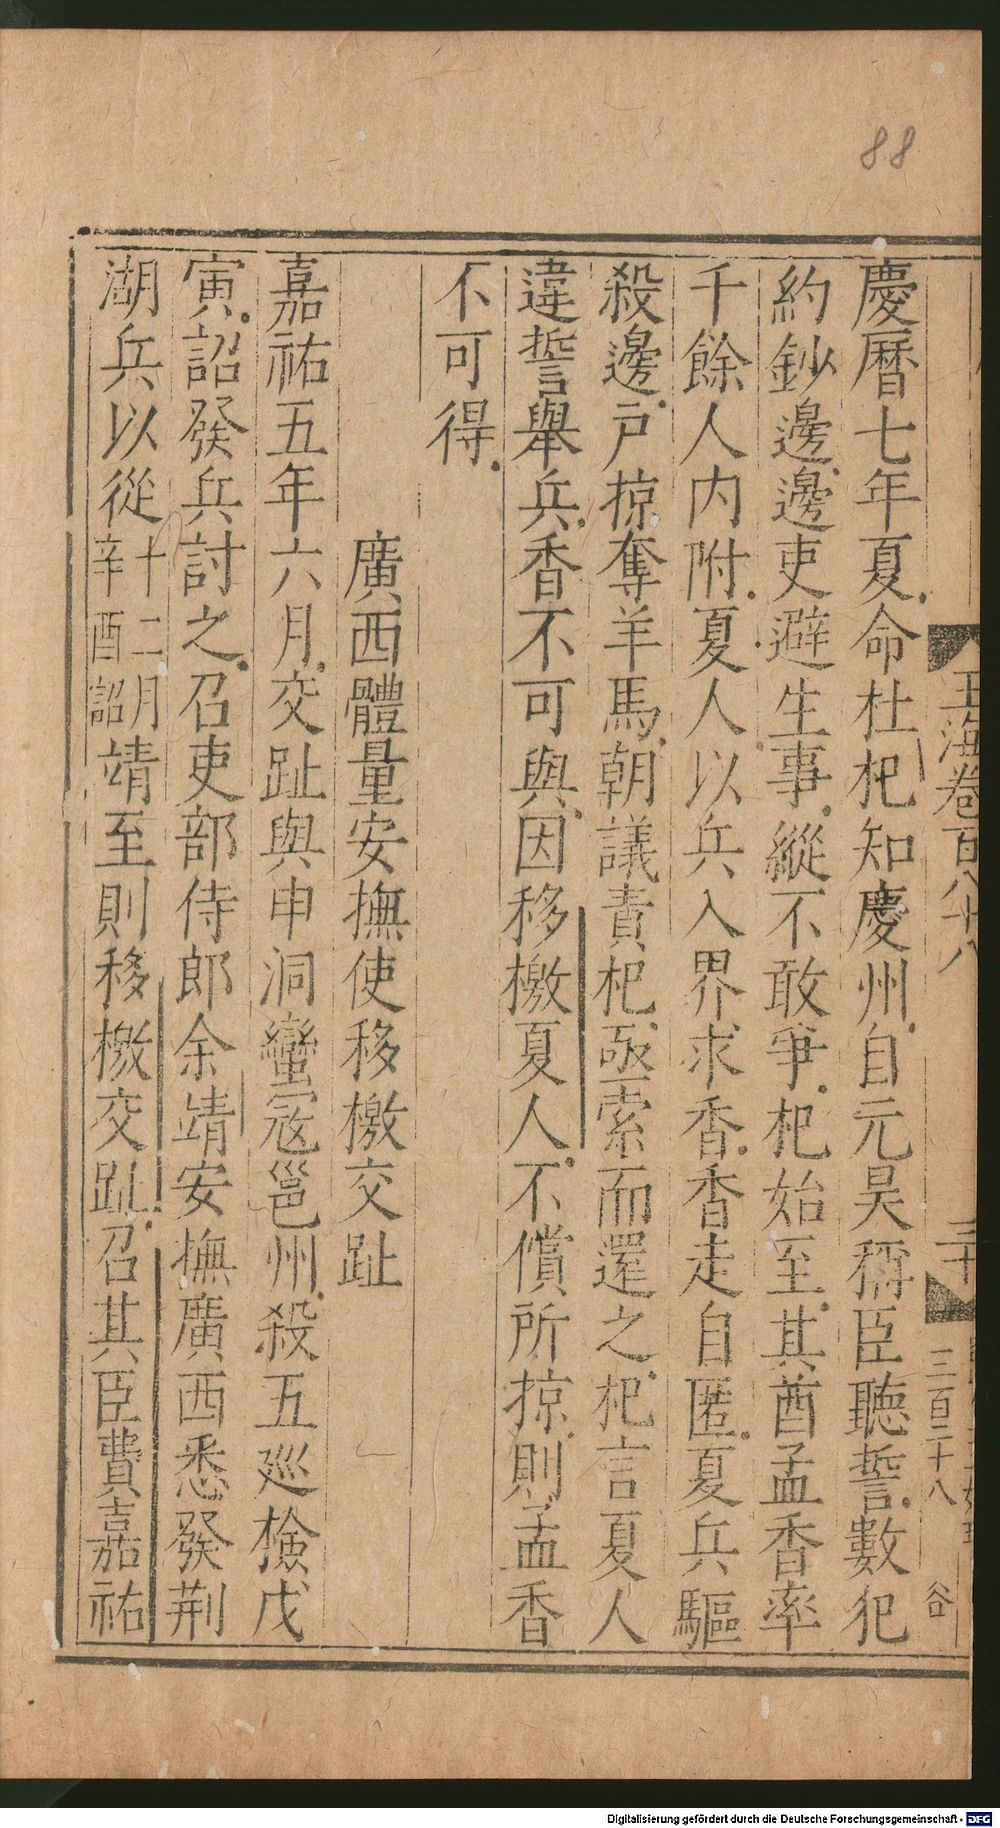 88
慶曆七年夏命杜杞知慶州自元昊稱臣聽誓數犯
約鈔邊邊吏避生事縱不敢爭杞始至其酋孟香率
千餘人内附夏人以兵入界求香香走自匿夏兵驅
殺邊戸掠奪羊馬朝議責杞亟索而還之杞言夏人
違誓舉兵香不可與因移檄夏人不償所掠則孟香
不可得
廣西體量安撫使移檄交趾
嘉祐五年六月交趾與申洞蠻寇邕州殺五巡檢戊
寅詔發兵討之召吏部侍郎余靖安撫廣西悉發荆
湖兵以從十二月辛酉詔靖至則移檄交趾召其臣費嘉祐
玉海卷百八十八
三十
三百二十八
谷
Digitalisierung gefördert durch die Deutsche Forschungsgemeinschaft - DFG